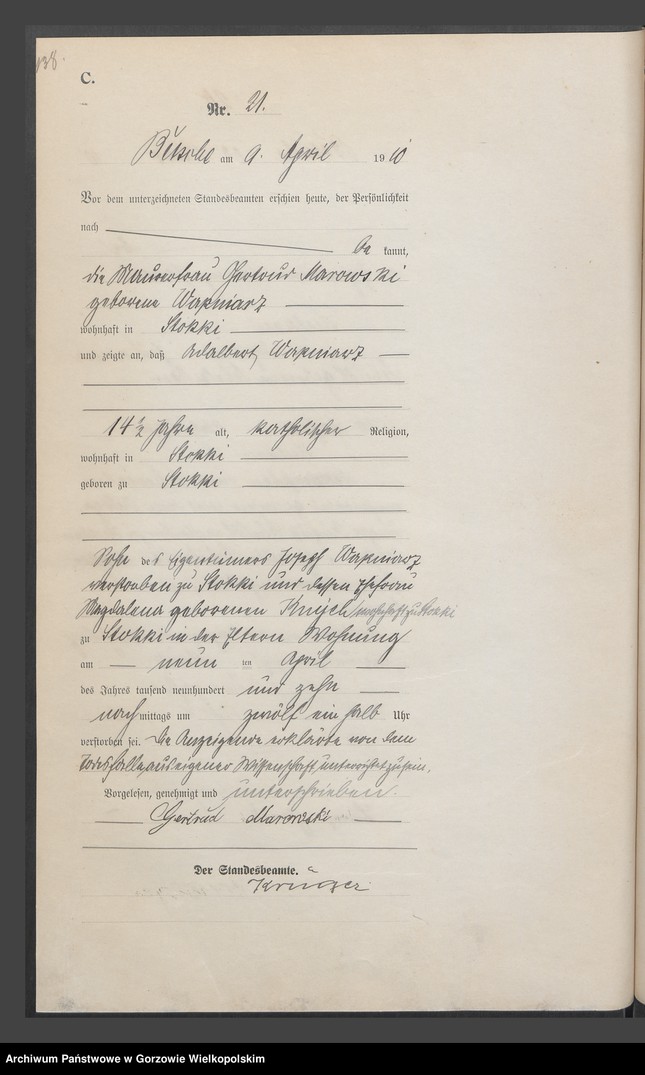 138.
C.
Nr. 21.
Betsche am 9. April 1910
Vor dem unterzeichneten Standesbeamten erschien heute, der Persönlichkeit
nach
be kannt,
die Maurerfrau Gertrud Marowski
geborene Wapniarz
wohnhaft in Stokki
und zeigte an, daß Adalbert Wapniarz
14 1/2 Jahre alt, katholischer Religion,
wohnhaft in Stokki
geboren zu Stokki
Sohn des Eigentümers Joseph Wapniarz
verstorben zu Stokki und dessen Ehefrau
Magdalena geborenen wohnhaft zu Stokki
zu Stokki in der Eltern Wohnung
am neun ten April
des Jahres tausend neunhundert und zehn
nach mittags um zwölf ein halb Uhr
verstorben sei. Die Anzeigende erklärte von dem
Todesfalle aus eigener Wissenschaft unterrichtet zu sein.
Vorgelesen, genehmigt und unterschrieben.
Gertrud Marowski
Der Standesbeamte.
Krüger
Archiwum Państwowe w Gorzowie Wielkopolskim